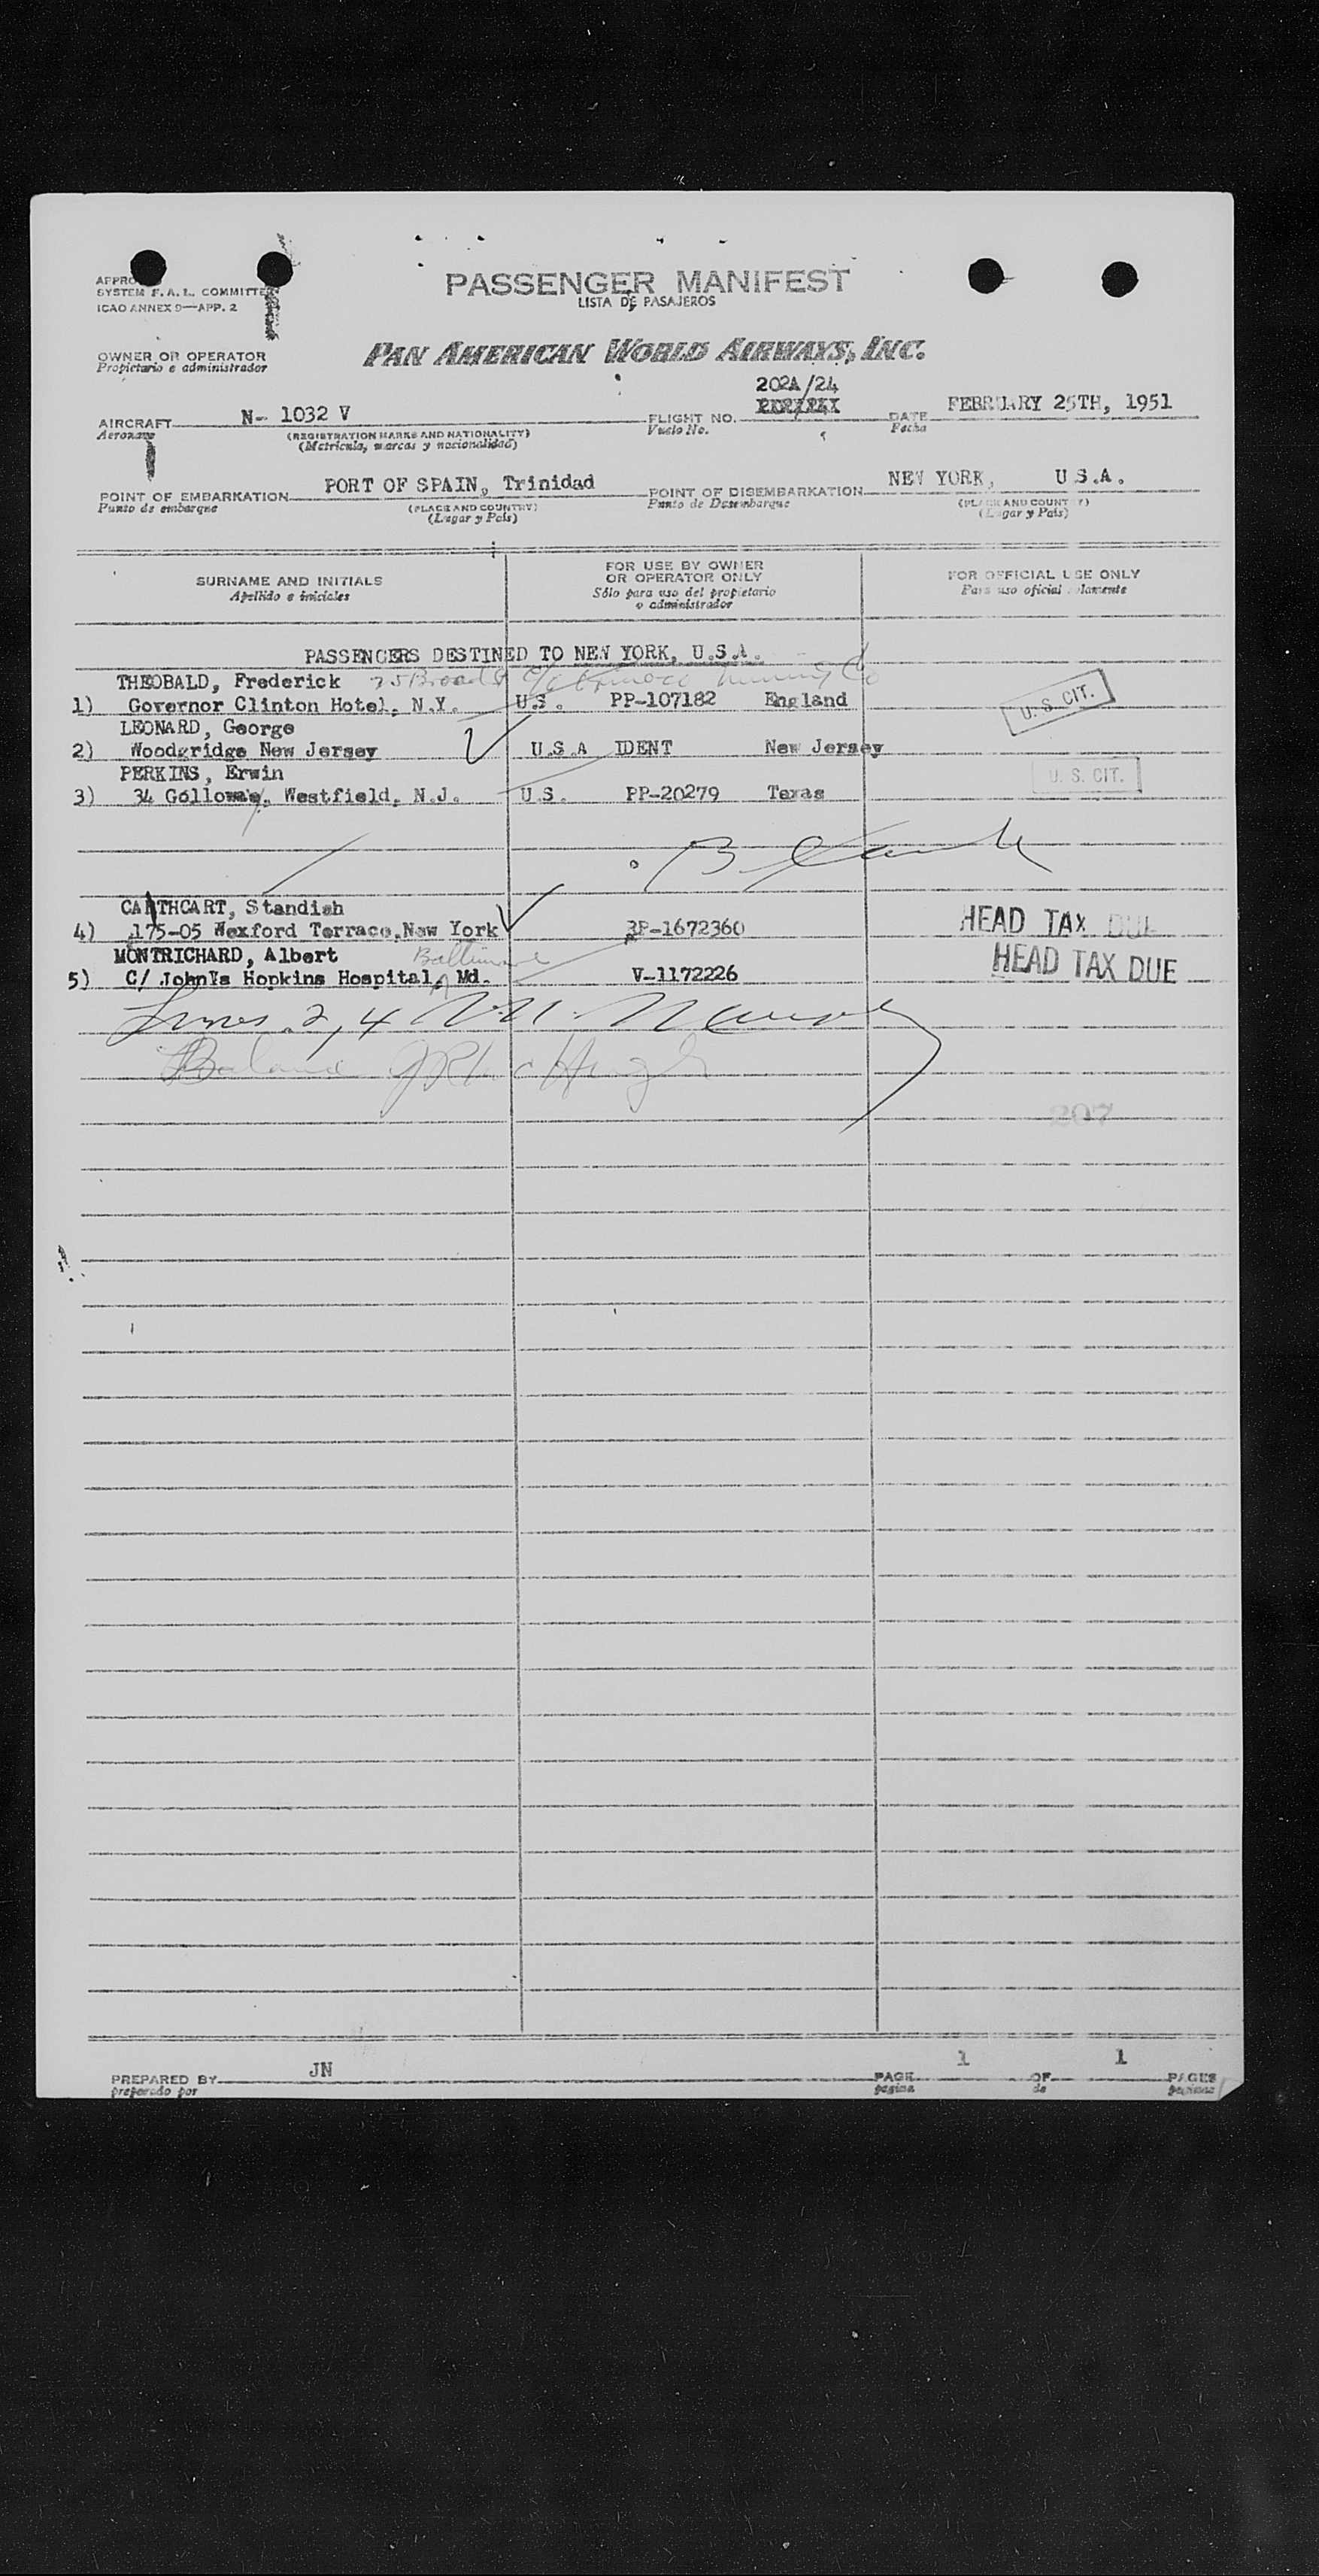 APPRO
SYSTEM F.A.L. COMMITTEE
ICAO ANNEX 9—APP. 2
PASSENGER MANIFEST
LISTA DE PASAJEROS
OWNER OR OPERATOR
Propietario e administrador
PAN AMERICAN WORLD AIRWAYS, INC.
202A/24
AIRCRAFT N- 1032 V FLIGHT NO. DATE FEBRUARY 25TH, 1951
Aeronave (REGISTRATION MARKS AND NATIONALITY) Vuelo No. Fecha
(Matricula, marcas y nacionalidad)
POINT OF EMBARKATION PORT OF SPAIN, Trinidad POINT OF DISEMBARKATION NEW YORK, U.S.A.
Punto de embarque (PLACE AND COUNTRY) Punto de Desembarque (PLACE AND COUNTRY)
(Lugar y País) (Lugar y País)
SURNAME AND INITIALS FOR USE BY OWNER OR OPERATOR ONLY FOR OFFICIAL USE ONLY
Apellido e iniciales Sólo para uso del propietario o administrador Para uso oficial solamente
PASSENGERS DESTINED TO NEW YORK, U.S.A.
THEOBALD, Frederick 25 Broad St c/o Orinoco Mining Co
1) Governor Clinton Hotel, N.Y. U.S. PP-107182 England U. S. CIT.
LEONARD, George
2) Woodgridge New Jersey U.S.A IDENT New Jersey
PERKINS, Erwin U. S. CIT.
3) 34 Golloway, Westfield, N.J. U.S. PP-20279 Texas
CARTHCART, Standish
4) 175-05 Wexford Terrace, New York RP-1672360 HEAD TAX DUE
MONTRICHARD, Albert Baltimore
5) C/ John's Hopkins Hospital, Md. V-1172226 HEAD TAX DUE
Lines 2, 4
Balance
207
PREPARED BY JN PAGE 1 OF 1 PAGES
preparado por pagina de paginas